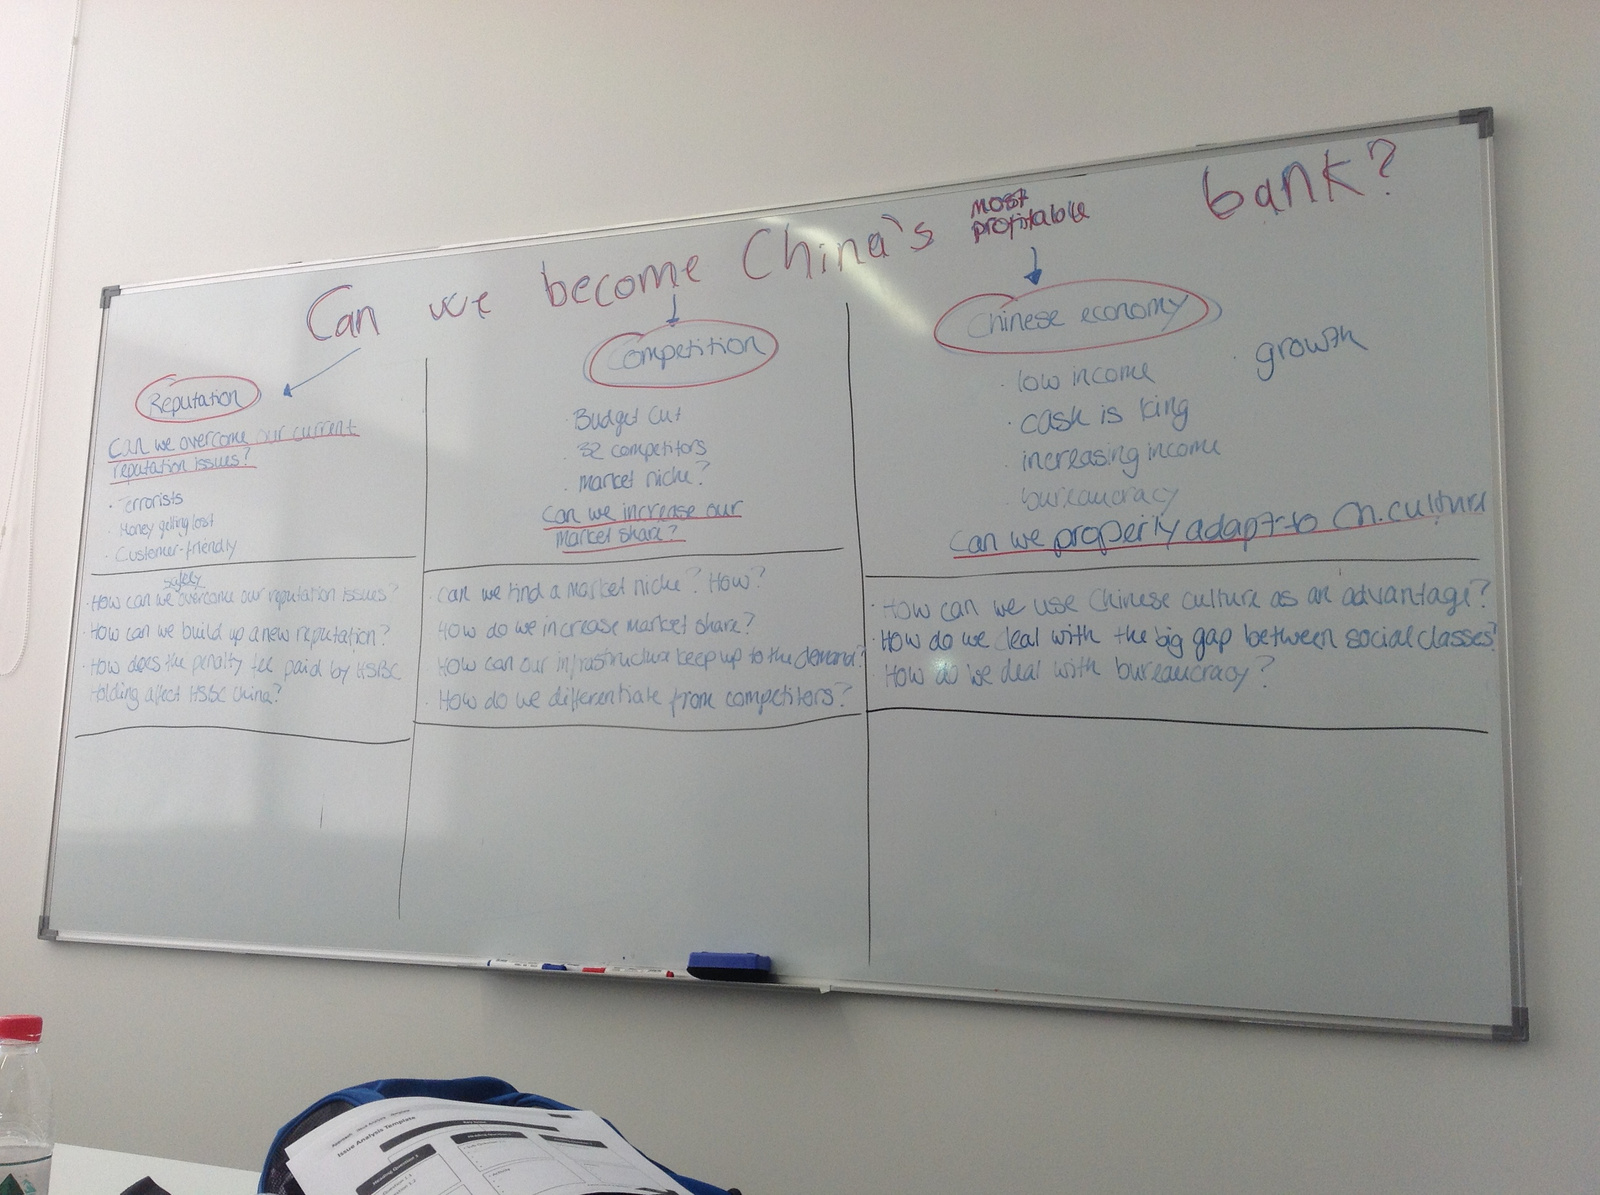 Can we become China's most profitable bank?
Reputation
Can we overcome our current
reputation issues?
· Terrorists
· Money getting lost
· Customer-friendly
safely
· How can we overcome our reputation issues?
· How can we build up a new reputation?
· How does the penalty fee paid by HSBC
Holding affect HSBC China?
Competition
· Budget cut
· 32 competitors
· Market niche?
Can we increase our
market share?
· Can we find a market niche? How?
· How do we increase market share?
· How can our infrastructure keep up to the demand?
· How do we differentiate from competitors?
Chinese economy
· low income
· growth
· cash is king
· increasing income
· bureaucracy
Can we properly adapt to Ch. culture
· How can we use Chinese culture as an advantage?
· How do we deal with the big gap between social classes?
· How do we deal with bureaucracy?
Issue Analysis Template